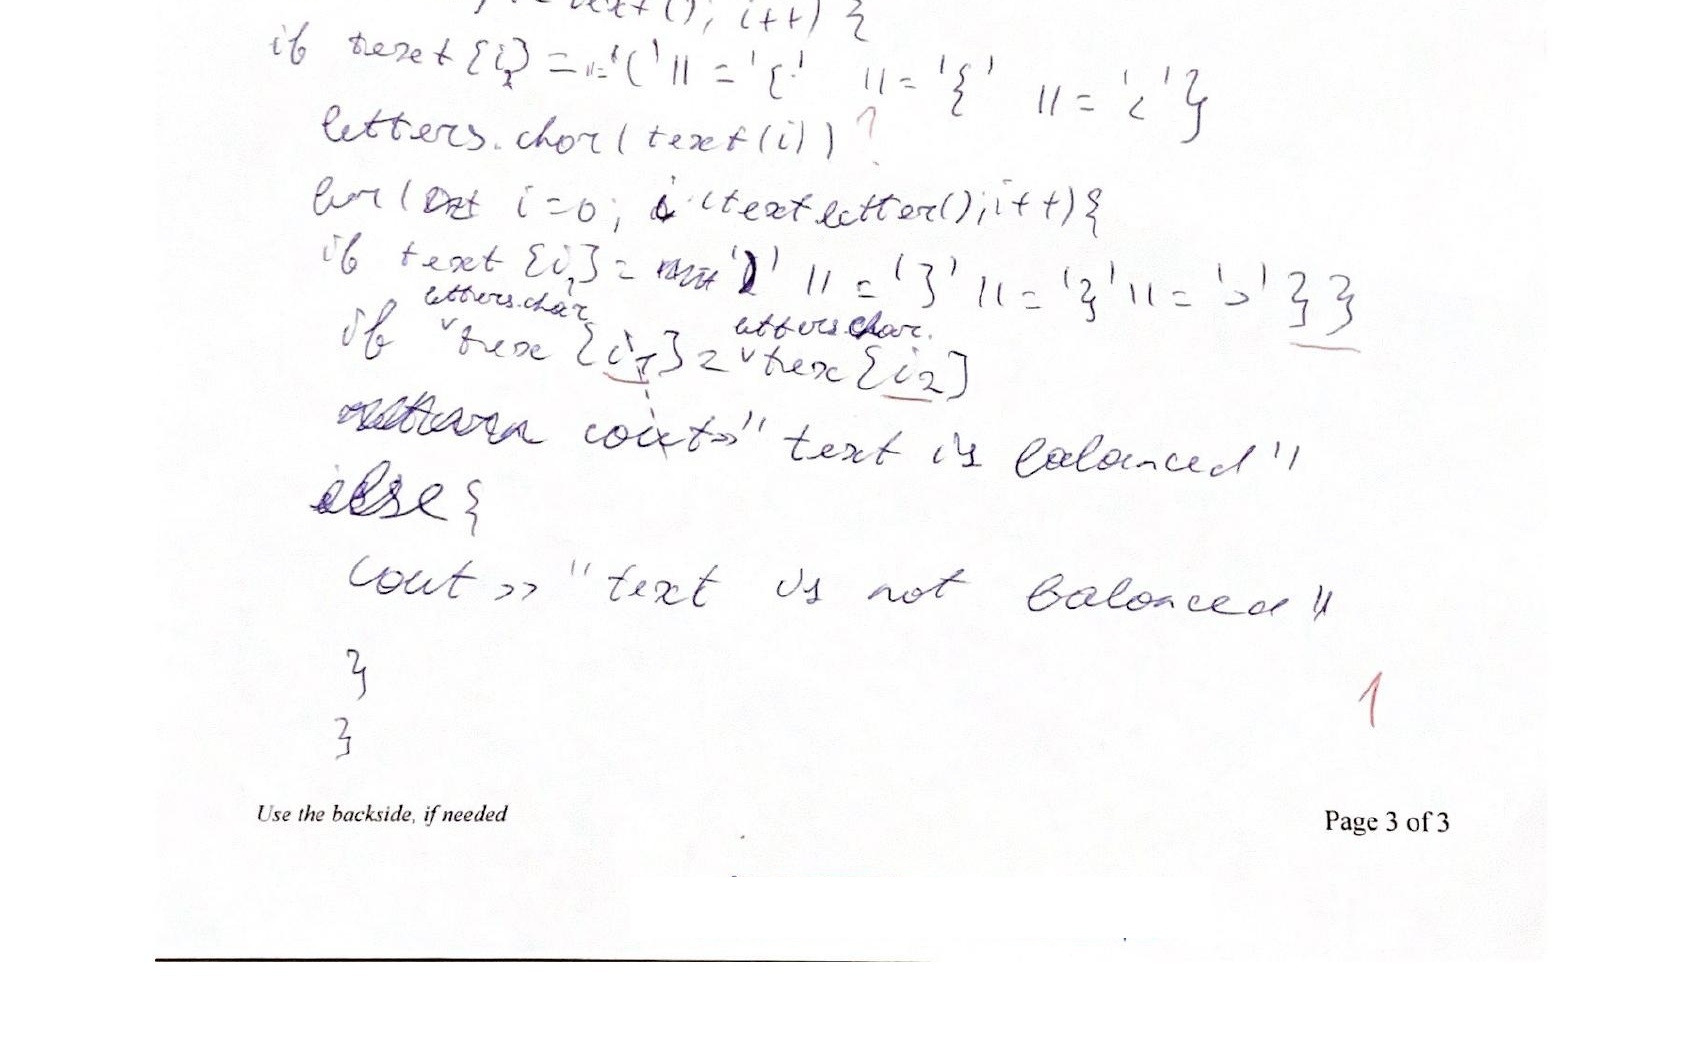 text(); i++) {
if text {i} = '(' || = '[' || = '{' || = '<' }
letters.char(text(i)) ?
for(int i=0; i<textletter(); i++){
if text {i} = ')' || = ']' || = '}' || = '>' } }
letters.char letters char.
if tex {i1} = tex {i2}
return cout>>" text is balanced"
else {
cout >> "text is not balanced"
}
1
}
Use the backside, if needed Page 3 of 3